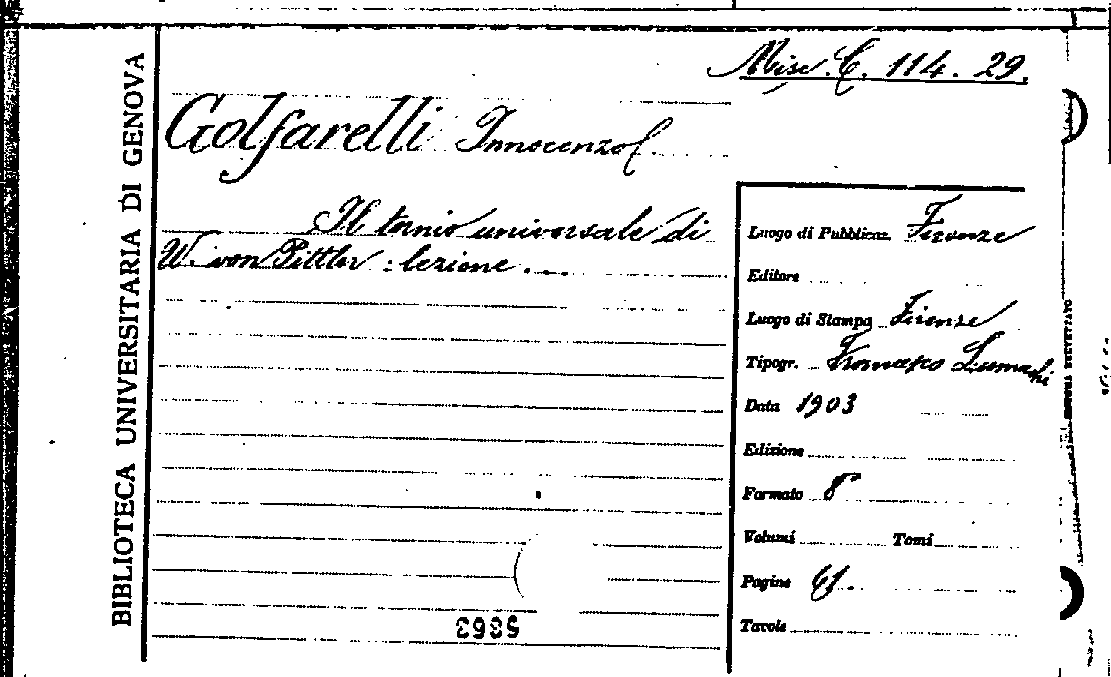 Misc. C. 114. 29.
BIBLIOTECA UNIVERSITARIA DI GENOVA
Golfarelli Innocenzo
Il tornio universale di
W. von Pittler : lezione ...
Luogo di Pubblicaz. Firenze
Editore
Luogo di Stampa Firenze
Tipogr. Francesco Lumachi
Data 1903
Edizione
Formato 8°
Volumi Tomi
Pagine 61.
Tavole